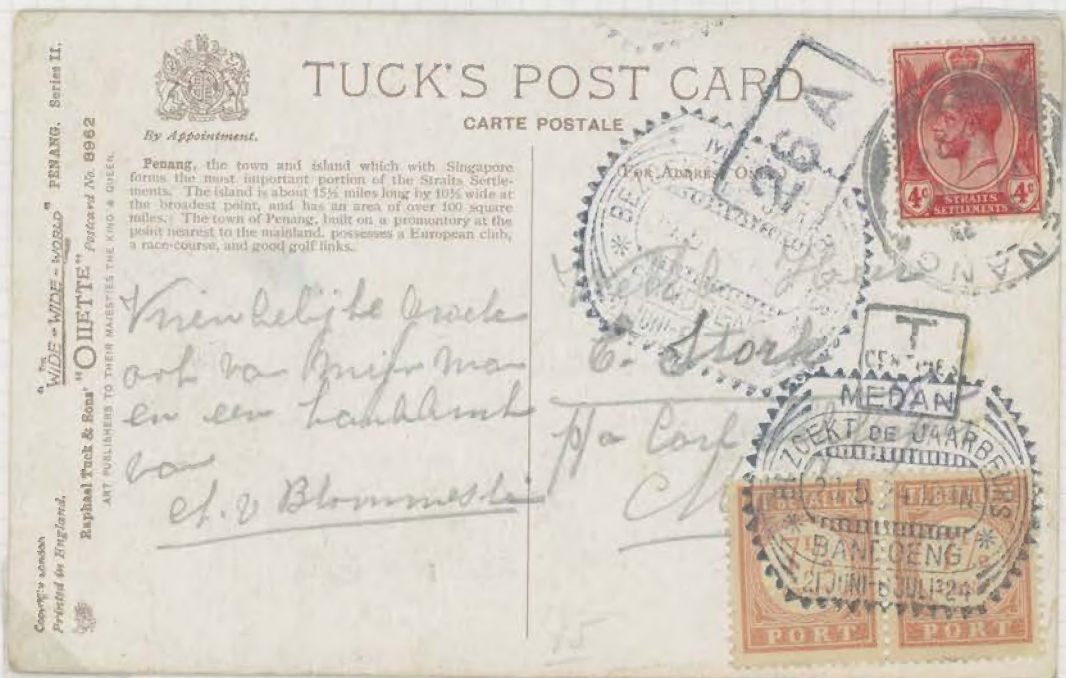 "THE
"WIDE-WIDE-WORLD" PENANG. Series II.
Raphael Tuck & Sons' "OILETTE" Postcard No. 8962
ART PUBLISHERS TO THEIR MAJESTIES THE KING & QUEEN.
Copyright London
Printed in England.
By Appointment.
TUCK'S POST CARD
CARTE POSTALE
(FOR ADDRESS ONLY)
Penang, the town and island which with Singapore
forms the most important portion of the Straits Settle-
ments. The island is about 15½ miles long by 10½ wide at
the broadest point, and has an area of over 100 square
miles. The town of Penang, built on a promontory at the
point nearest to the mainland, possesses a European club,
a race-course, and good golf links.
Vriendelijke groete
ook van mijn man
en een handdruk
van
v Blommestein
E. Stork
p/a Carl
26A
4c 4c
STRAITS
SETTLEMENTS
T
CENTIMES
MEDAN
BEZOEKT DE JAARBEURS
BANDOENG
21 JUNI-6 JULI '24
7½ 7½
PORT PORT
15